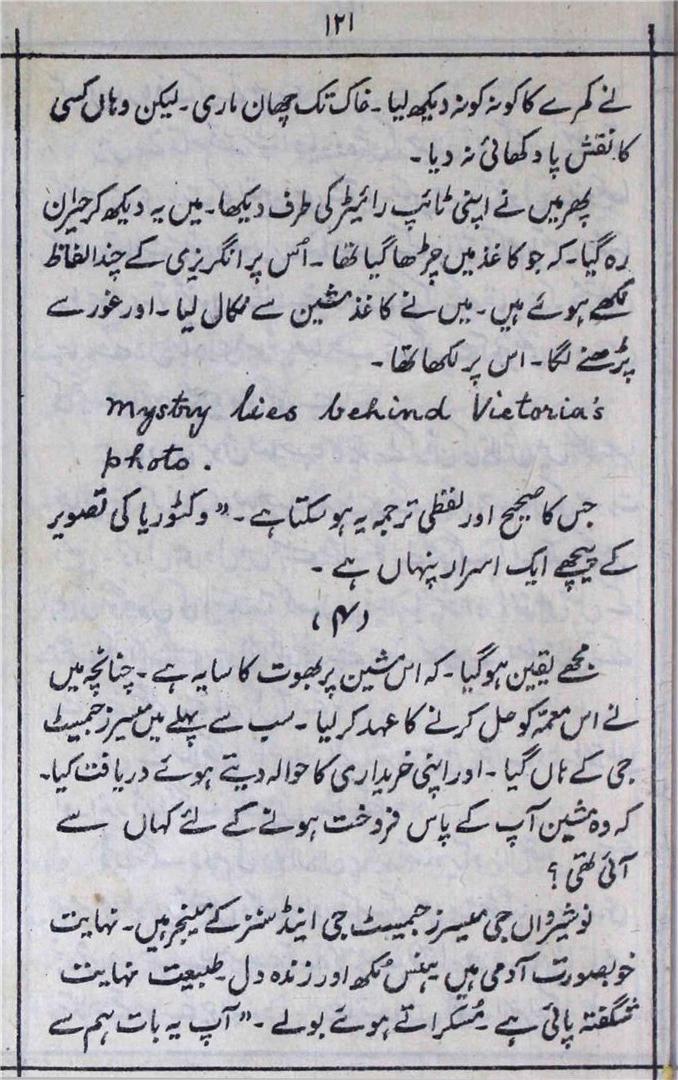 ۱۲۱
نے کمرے کا کونہ کونہ دیکھ لیا ۔ خاک تک چھان ماری ۔ لیکن وہاں کسی
کا نقش پا دکھائی نہ دیا ۔
پھر میں نے اپنی ٹائپ رائیٹر کی طرف دیکھا ۔ میں یہ دیکھ کر حیران
رہ گیا ۔ کہ جو کاغذ میں چڑھا گیا تھا ۔ اُس پر انگریزی کے چند الفاظ
لکھے ہوئے ہیں ۔ میں نے کاغذ مشین سے نکال لیا ۔ اور غور سے
پڑھنے لگا ۔ اس پر لکھا تھا ۔
Mystry lies behind Victoria's
photo.
جس کا صحیح اور لفظی ترجمہ یہ ہو سکتا ہے ۔ " وکٹوریا کی تصویر
کے پیچھے ایک اسرار پنہاں ہے ۔
(۴)
مجھے یقین ہو گیا ۔ کہ اس مشین پر بھوت کا سایہ ہے ۔ چنانچہ میں
نے اس معمّہ کو حل کرنے کا عہد کر لیا ۔ سب سے پہلے میں میسرز جمسیٹ
جی کے ہاں گیا ۔ اور اپنی خریداری کا حوالہ دیتے ہوئے دریافت کیا ۔
کہ وہ مشین آپ کے پاس فروخت ہونے کے لئے کہاں سے
آئی تھی ؟
نوشیرواں جی میسرز جمسیٹ جی اینڈ سنز کے مینجر ہیں ۔ نہایت
خوبصورت آدمی ہیں ہنس مکھ اور زندہ دل ۔ طبیعت نہایت
شگفتہ پائی ہے ۔ مُسکراتے ہوئے بولے ۔ " آپ یہ بات ہم سے